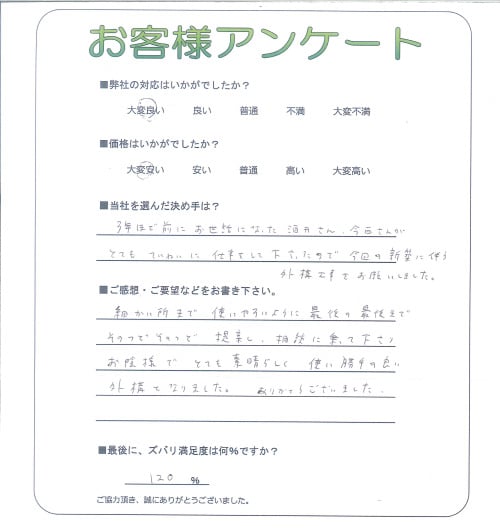 お客様アンケート
■弊社の対応はいかがでしたか?
大変良い 良い 普通 不満 大変不満
■価格はいかがでしたか?
大変安い 安い 普通 高い 大変高い
■当社を選んだ決め手は?
3年ほど前に お世話になった 酒井さん、今西さんが
とても ていねいに 仕事をして下さったので 今回の 新築に伴う
外構工事を お願いしました。
■ご感想・ご要望などをお書き下さい。
細かい所まで 使いやすいように 最後の最後まで
そのつどそのつど 提案し、相談に 乗って 下さり
お陰様で とても 素晴らしく 使い勝手の良い
外構となりました。 ありがとうございました。
■最後に、ズバリ満足度は何%ですか?
120 %
ご協力頂き、誠にありがとうございました。